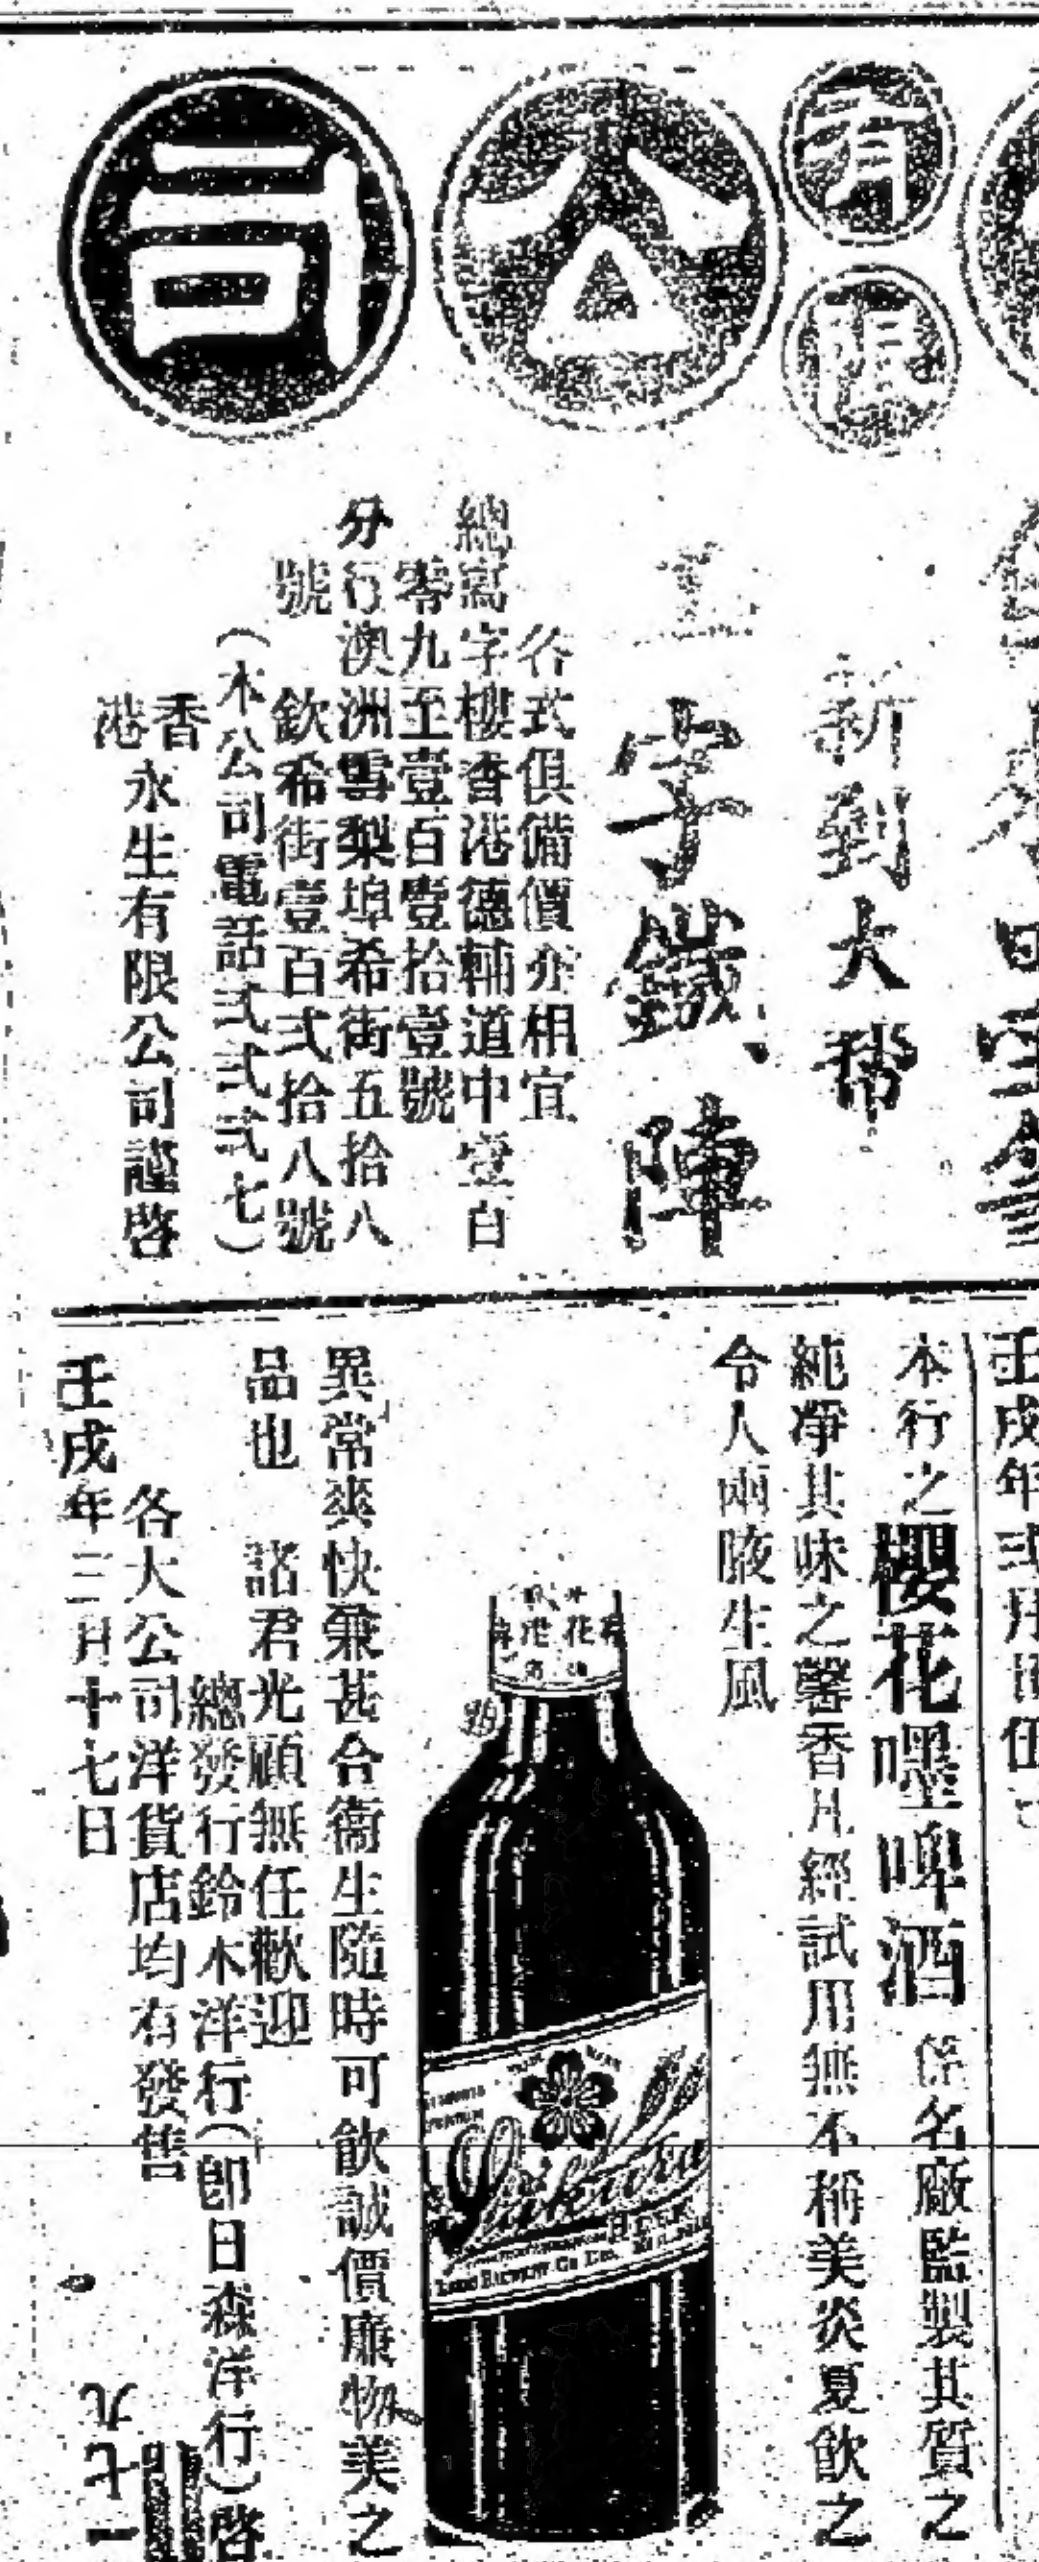 有限公司
新到大幫
字鐵陣
各式俱備價亦相宜
總寫字樓香港德輔道中壹百
零九至壹百壹拾壹號
分行澳洲雪梨埠希街五拾八
號　欽希街壹百弍拾八號
（本公司電話弍弍弍七）
香港永生有限公司謹啓
壬戌年弍月
本行之櫻花嘿啤酒係名廠監製其質之
純凈其味之馨香凡經試用無不稱美炎夏飲之
令人兩腋生風
Sakura
BEER
異常爽快兼甚合衞生隨時可飲誠價廉物美之
品也　諸君光顧無任歡迎
總發行鈴木洋行（卽日森洋行）啓
各大公司洋貨店均有發售
壬戌年三月十七日